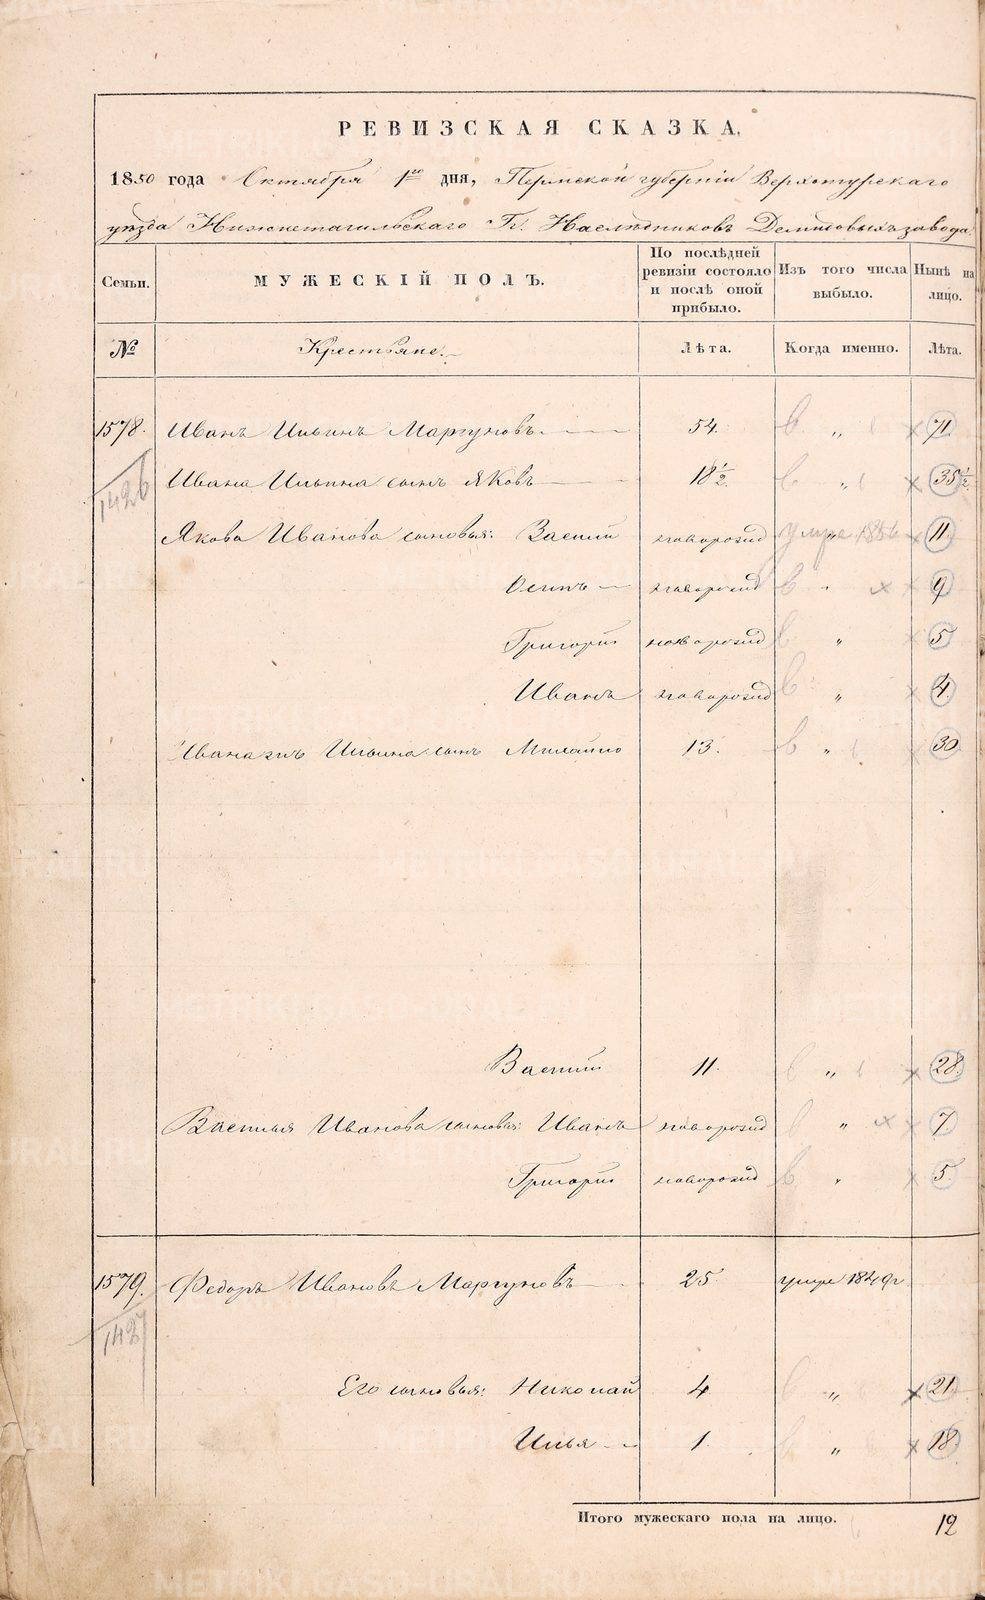 РЕВИЗСКАЯ СКАЗКА,
1850 года Октября 1го дня, Пермской губернiи Верхотурскаго
уѣзда Нижнетагильскаго Гг. Наслѣдниковъ Демидовыхъ завода
Семьи. МУЖЕСКІЙ ПОЛЪ. По послѣдней ревизіи состояло и послѣ оной прибыло. Изъ того числа выбыло. Нынѣ на лицо.
№ Крестьяне. Лѣта. Когда именно. Лѣта.
1578. Иванъ Ильинъ Моргуновъ 54. " 71
1426 Ивана Ильина сынъ Яковъ 18½ " 35½
Якова Иванова сыновья: Василий новорожд умре 1856 11
Осипъ новорожд " 9
Григорий новорожд " 5
Иванъ новорожд " 4
Ивана Ильина сынъ Михайло 13. " 30
Василий 11. " 28.
Василья Иванова сыновья: Иванъ новорожд " 7
Григорий новорожд " 5
1579. Федоръ Ивановъ Моргуновъ 25 умре 1849г
1427
Его сыновья: Николай 4 " 21
Илья 1. " 18
Итого мужескаго пола на лицо. 12
METRIKI.GASO-URAL.RU